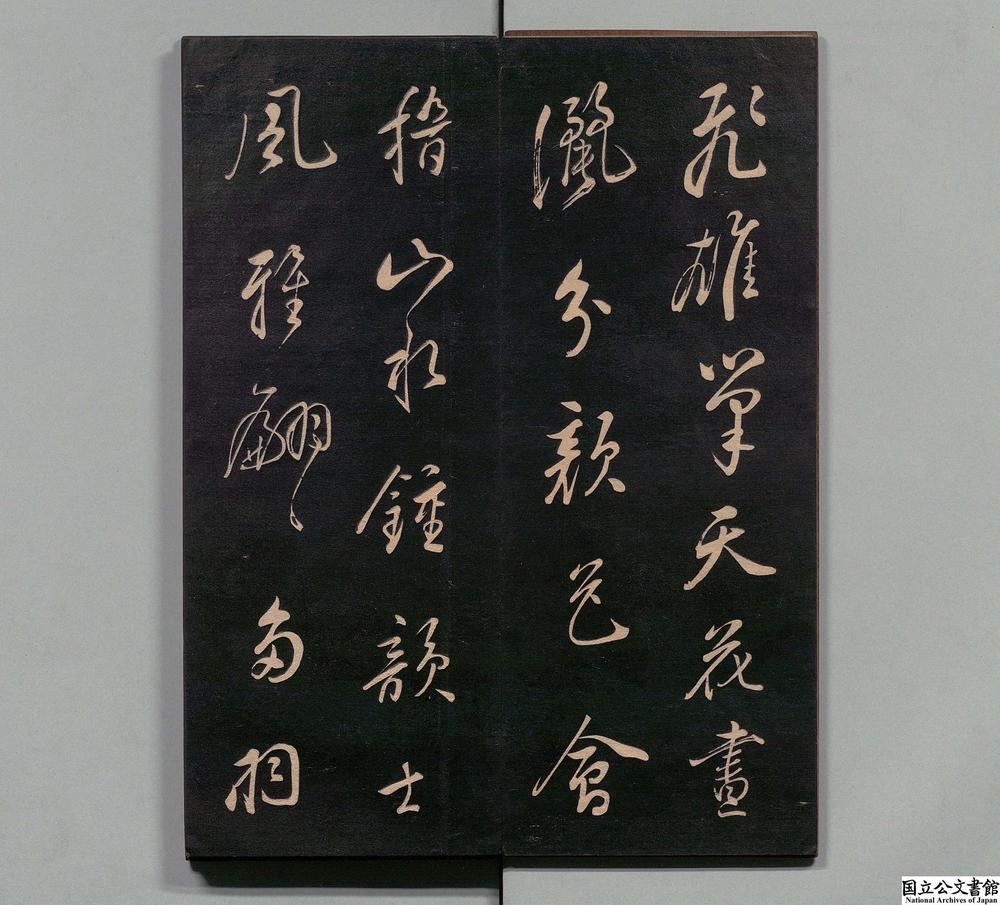 飛雄筆天花晝
灑分顔色會
稽山水鍾韻士
風雅翩〻多相
国立公文書館
National Archives of Japan